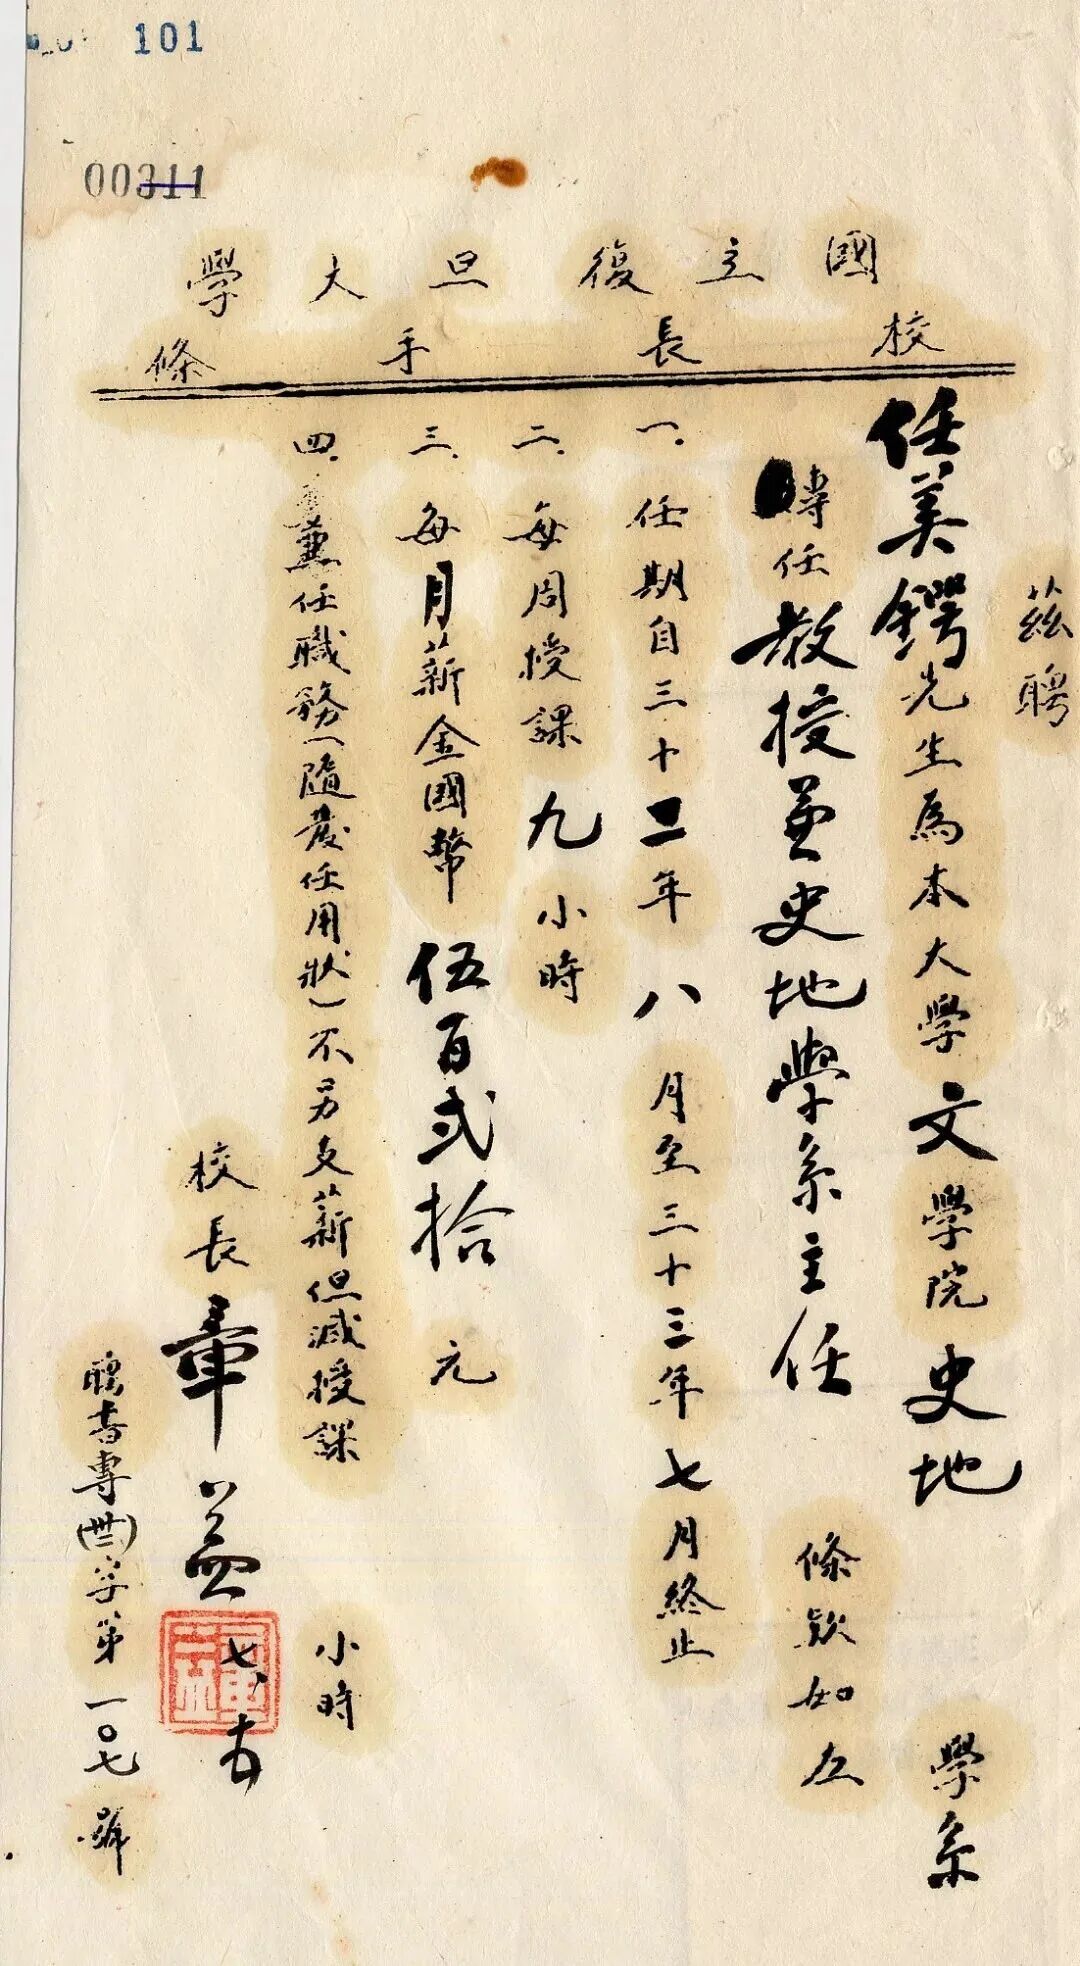 101
00311
國立復旦大學
校長手條
茲聘
任美鍔先生為本大學文學院史地學系
專任教授兼史地學系主任 條款如左
一.任期自三十二年八月至三十三年七月終止
二.每周授課九小時
三.每月薪金國幣伍百弍拾元
四.兼任職務(隨發任用狀)不另支薪但減授課 小時
校長章益
聘書專(卅二)字第一〇七號